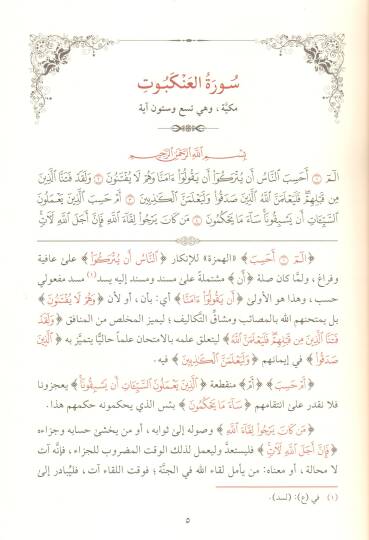 سُورَةُ العَنْكَبُوتِ
مكيَّة ، وهي تسع وستون آية
بِسْمِ اللَّهِ الرَّحْمَنِ الرَّحِيمِ
الٓمٓ ١ أَحَسِبَ النَّاسُ أَن يُتْرَكُوٓا۟ أَن يَقُولُوٓا۟ ءَامَنَّا وَهُمْ لَا يُفْتَنُونَ ٢ وَلَقَدْ فَتَنَّا الَّذِينَ
مِن قَبْلِهِمْ فَلَيَعْلَمَنَّ اللَّهُ الَّذِينَ صَدَقُوا۟ وَلَيَعْلَمَنَّ الْكَـٰذِبِينَ ٣ أَمْ حَسِبَ الَّذِينَ يَعْمَلُونَ
السَّيِّـَٔاتِ أَن يَسْبِقُونَا سَآءَ مَا يَحْكُمُونَ ٤ مَن كَانَ يَرْجُوا۟ لِقَآءَ اللَّهِ فَإِنَّ أَجَلَ اللَّهِ لَـَٔاتٍ
﴿الٓمٓ ١ أَحَسِبَ﴾ «الهمزة» للإنكار ﴿النَّاسُ أَن يُتْرَكُوٓا۟﴾ على عافية
وفراغ، ولمّا كان صلة ﴿أَن﴾ مشتملةً على مسند ومسند إليه يسد(١) مسد مفعولي
حسب، وهذا هو الأولىٰ ﴿أَن يَقُولُوٓا۟ ءَامَنَّا﴾ أي: بأن، أو لأن ﴿وَهُمْ لَا يُفْتَنُونَ﴾
بل يمتحنهم الله بالمصائب ومشاقّ التكاليف؛ ليميز المخلص من المنافق ﴿وَلَقَدْ
فَتَنَّا الَّذِينَ مِن قَبْلِهِمْ فَلَيَعْلَمَنَّ اللَّهُ﴾ ليتعلق علمه بالامتحان علماً حاليًّا يتميَّز به ﴿الَّذِينَ
صَدَقُوا۟﴾ في إيمانهم ﴿وَلَيَعْلَمَنَّ الْكَـٰذِبِينَ﴾ فيه.
﴿أَمْ حَسِبَ﴾ ﴿أَمْ﴾ منقطعة ﴿الَّذِينَ يَعْمَلُونَ السَّيِّـَٔاتِ أَن يَسْبِقُونَا﴾ يعجزونا
فلا نقدر على انتقامهم ﴿سَآءَ مَا يَحْكُمُونَ﴾ بئس الذي يحكمونه حكمهم هذا.
﴿مَن كَانَ يَرْجُوا۟ لِقَآءَ اللَّهِ﴾ وصوله إلىٰ ثوابه، أو من يخشىٰ حسابه وجزاءه
﴿فَإِنَّ أَجَلَ اللَّهِ لَـَٔاتٍ﴾ فليستعدَّ وليعمل لذلك الوقت المضروب للجزاء، فإنَّه آت
لا محالة، أو معناه: من يأمل لقاء الله في الجنَّة؛ فوقت اللقاء آت، فليبادر إلىٰ
(١) في (ع): (لسد).
٥